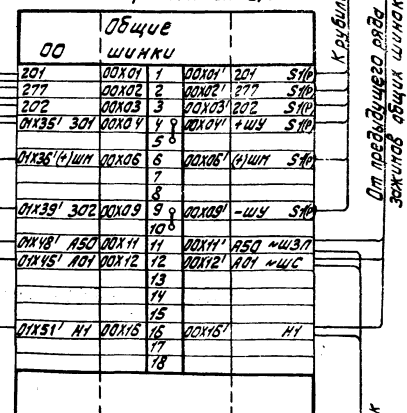 Общие
00 шинки
201 00X01 1 00X01' 201 S1(P)
277 00X02 2 00X02' 277 S1(P)
202 00X03 3 00X03' 202 S1(P)
01X35' 301 00X04 4 00X04' +ШУ S1(P)
5
01X36' (+)ШМ 00X06 6 00X06' (+)ШМ S1(P)
7
8
01X39' 302 00X09 9 00X09' -ШУ S1(P)
10
01X48' A50 00X11 11 00X11' A50 ~ШЗП
01X45' A01 00X12 12 00X12' A01 ~ШС
13
14
15
01X51' H1 00X16 16 00X16' H1
17
18
От предыдущего ряда
зажимов общих шинок
к